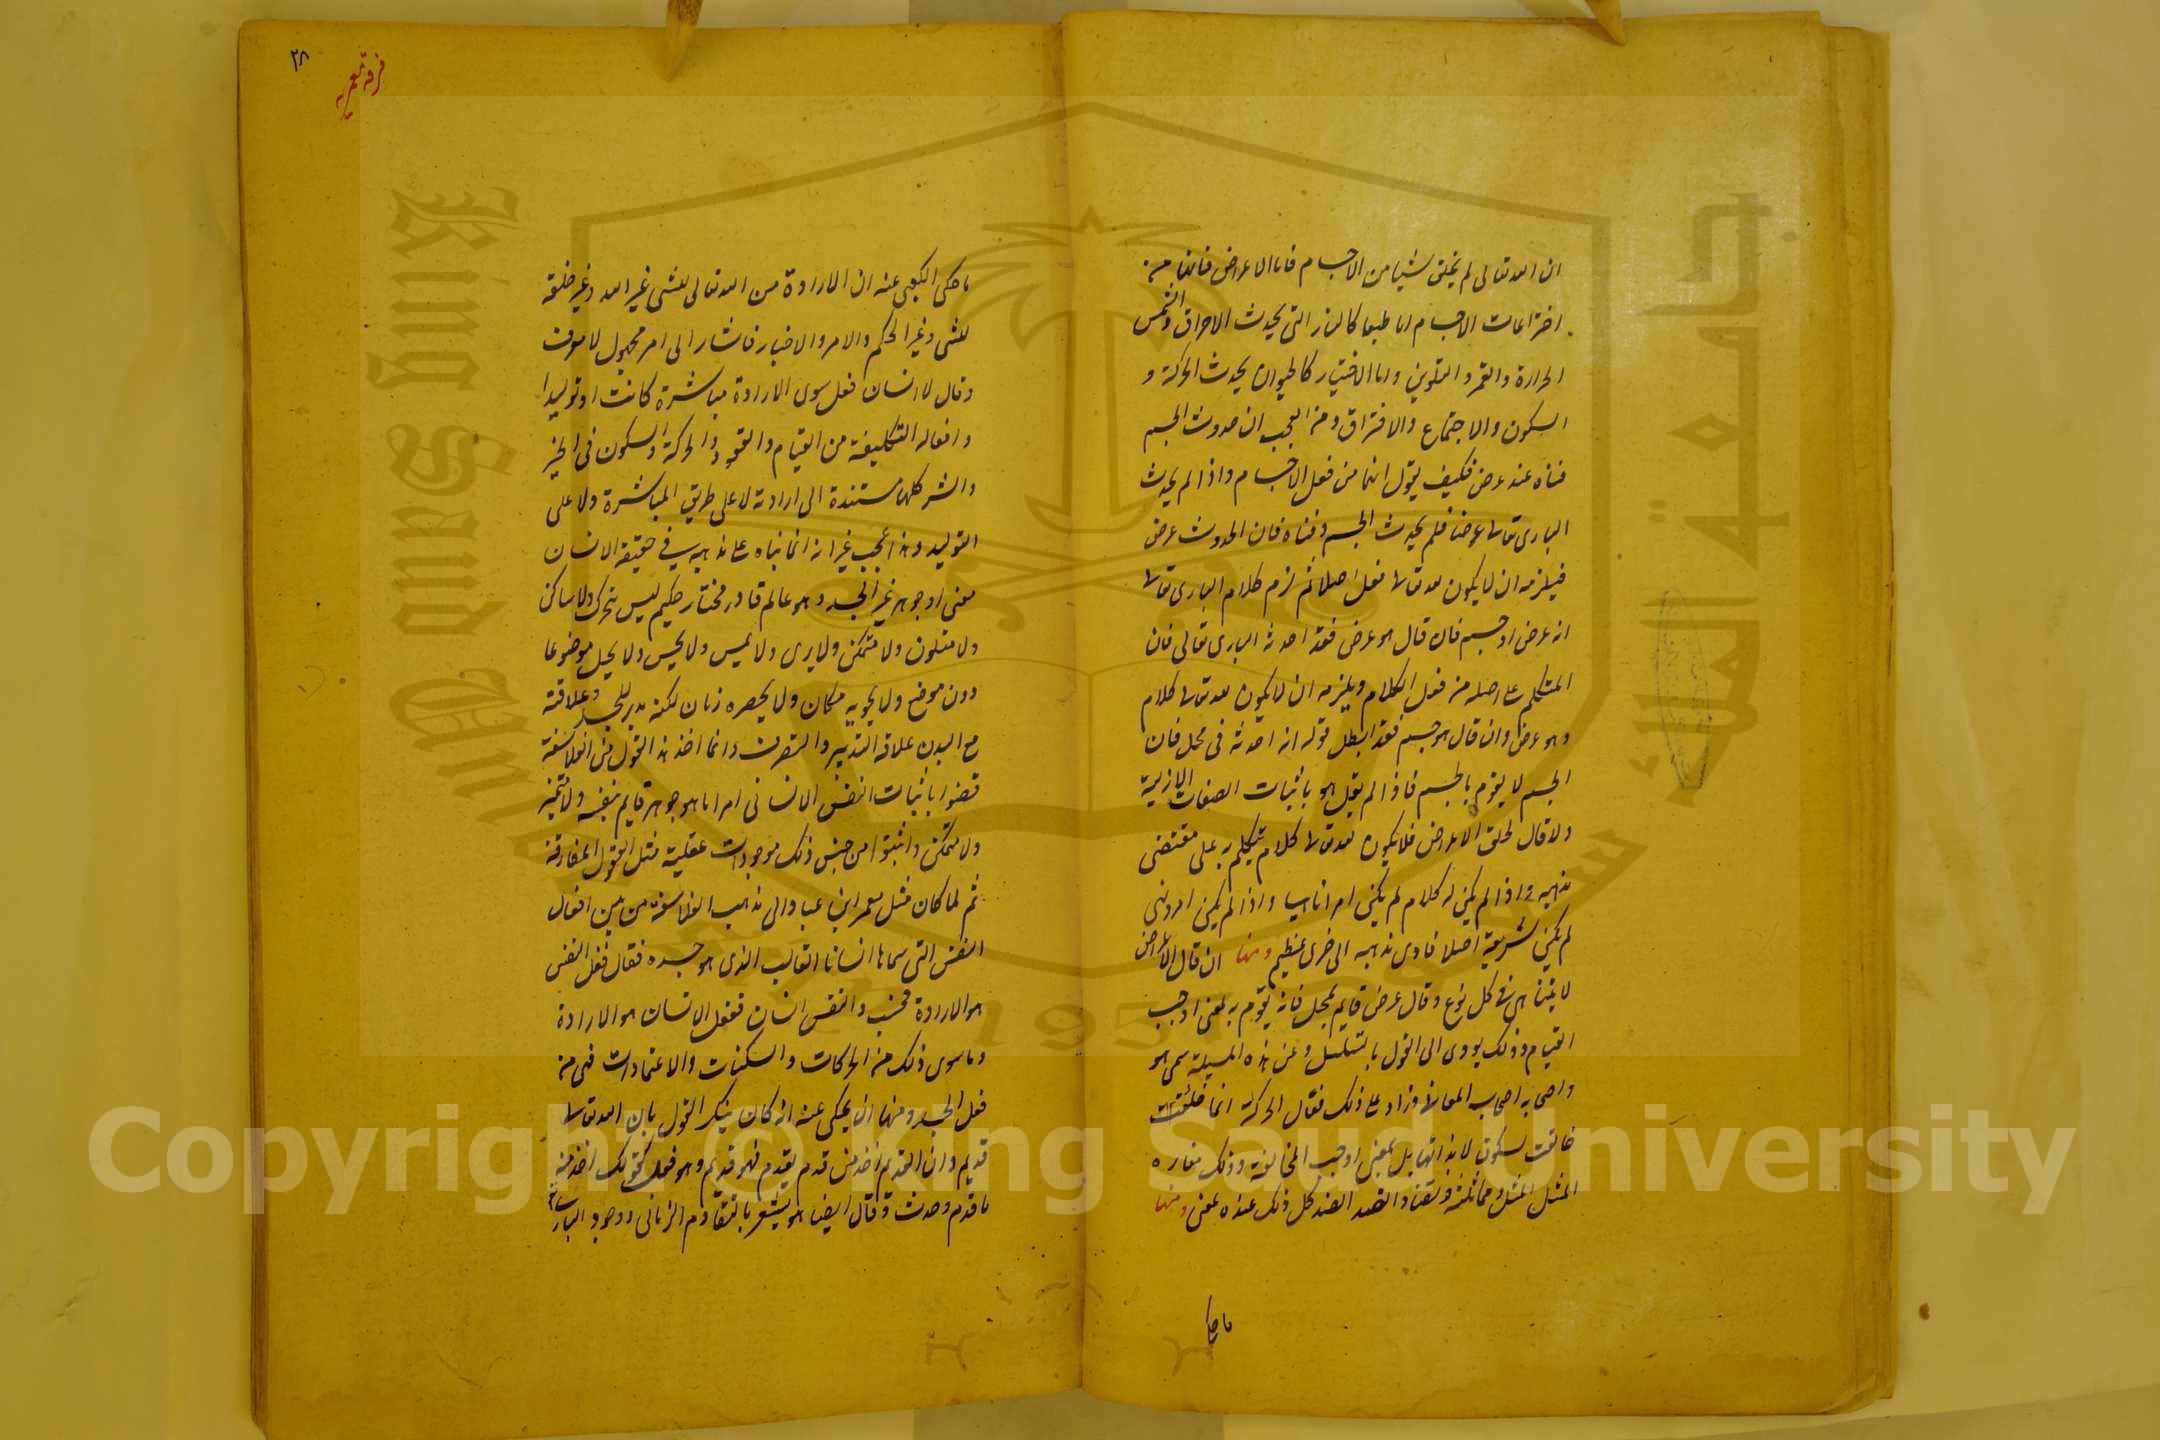 ان الله تعالى لم يخلق شيئا من الاجسام فاما الاعراض فانها من
اختراعات الاجسام اما طبعا كالنار التى يحدث الاحراق والشمس
الحرارة والقمر والتلوين واما الاختيار كالحيوان يحدث الحركة و
السكون والاجتماع والافتراق ومن العجب ان حدوث الجسم
فناه عنده عرض فكيف يقول انها من فعل الاجسام واذا لم يحدث
البارى تعا عرضا فلم يحدث الجسم وفناه فان الحدوث عرض
فيلزمه ان لا يكون لله تعا فعل اصلا ثم لزم كلام البارى تعا
انه عرض او جسم فان قال هو عرض فقد احدثه البارى تعالى فان
المتكلم على اصله من فعل الكلام ويلزمه ان لا يكون لله تعا كلام
وهو عرض وان قال هو جسم فقد ابطل قوله انه احدثه فى محل فان
الجسم لا يقوم بالجسم فاذا لم يقل هو باثبات الصفات الازلية
ولا قال لخلق الاعراض فلا يكون لله تعا كلام يتكلم به على مقتضى
مذهبه واذا لم يكن له كلام لم يكن امرا ناهيا واذا لم يكن امر ونهى
لم يكن شريعة اصلا فادى مذهبه الى خزى عظيم ومنها ان قال الاعراض
لا يتناهى فى كل نوع وقال عرض قايم بمحل فانه يقوم به لمعنى اوجب
القيام وذلك يودى الى القول بالتسلسل وعن هذه المسيلة سمى هو
واصحابه اصحاب المعانى وزاد على ذلك فقال الحركة انما خالفت
خالفت السكون لا بذاتها بل لمعنى اوجب المخالفة وذلك مغاره
المثل المثل ومماثلته وتضاد الضد الضد كل ذلك عنده لمعنى ومنها
ما حكى
٢٨
فرقة معمريه
ما حكى الكعبى عنه ان الارادة من الله تعالى للشى غير الله وغير خلقه
للشى وغير الحكم والامر والاخبار فاشار الى امر مجهول لا يعرف
وقال لا انسان فعل سوى الارادة مباشرة كانت او توليدا
وافعاله التكليفية من القيام والقعود والحركة والسكون فى الخير
والشر كلها مستندة الى ارادته لا على طريق المباشرة ولا على
التوليد وهذا عجب غير انه انما بناه على مذهبه فى حقيقة الانسان
معنى او جوهر غير الجسد وهو عالم قادر مختار حكيم ليس بمتحرك ولا ساكن
ولا متلون ولا متمكن ولا يرى ولا يمس ولا يحس ولا يحل موضوعا
دون موضع ولا يحويه مكان ولا يحصره زمان لكنه مدبر للجسد وعلاقته
مع البدن علاقة التدبير والتصرف وانما اخذ هذا القول من الفلاسفة
قضوا باثبات النفس الانسانى امرا ما هو جوهر قايم بنفسه ولا متحيز
ولا متمكن واثبتوا من جنس ذلك موجودات عقلية مثل العقول المفارقة
ثم لما كان ميل معمر ابن عباد الى مذهب الفلاسفة ميز بين افعال
النفس التى سماها انسانا القالب الذى هو جسده فقال فعل النفس
هو الارادة فحسب والنفس انسان ففعل الانسان هو الارادة
وما سوى ذلك من الحركات والسكنات والاعتمادات فهى من
فعل الجسد ومنها انه يحكى عنه انه كان ينكر القول بان الله تعا
قديم وان القديم اخذ من قدم يقدم فهو قديم وهو فعل كقولك اخذ منه
ما قدم وحدث وقال ايضا هو يشعر بالتقادم الزمانى ووجود البارى
Copyright © King Saud University
King Saud University
جامعة الملك سعود
1957